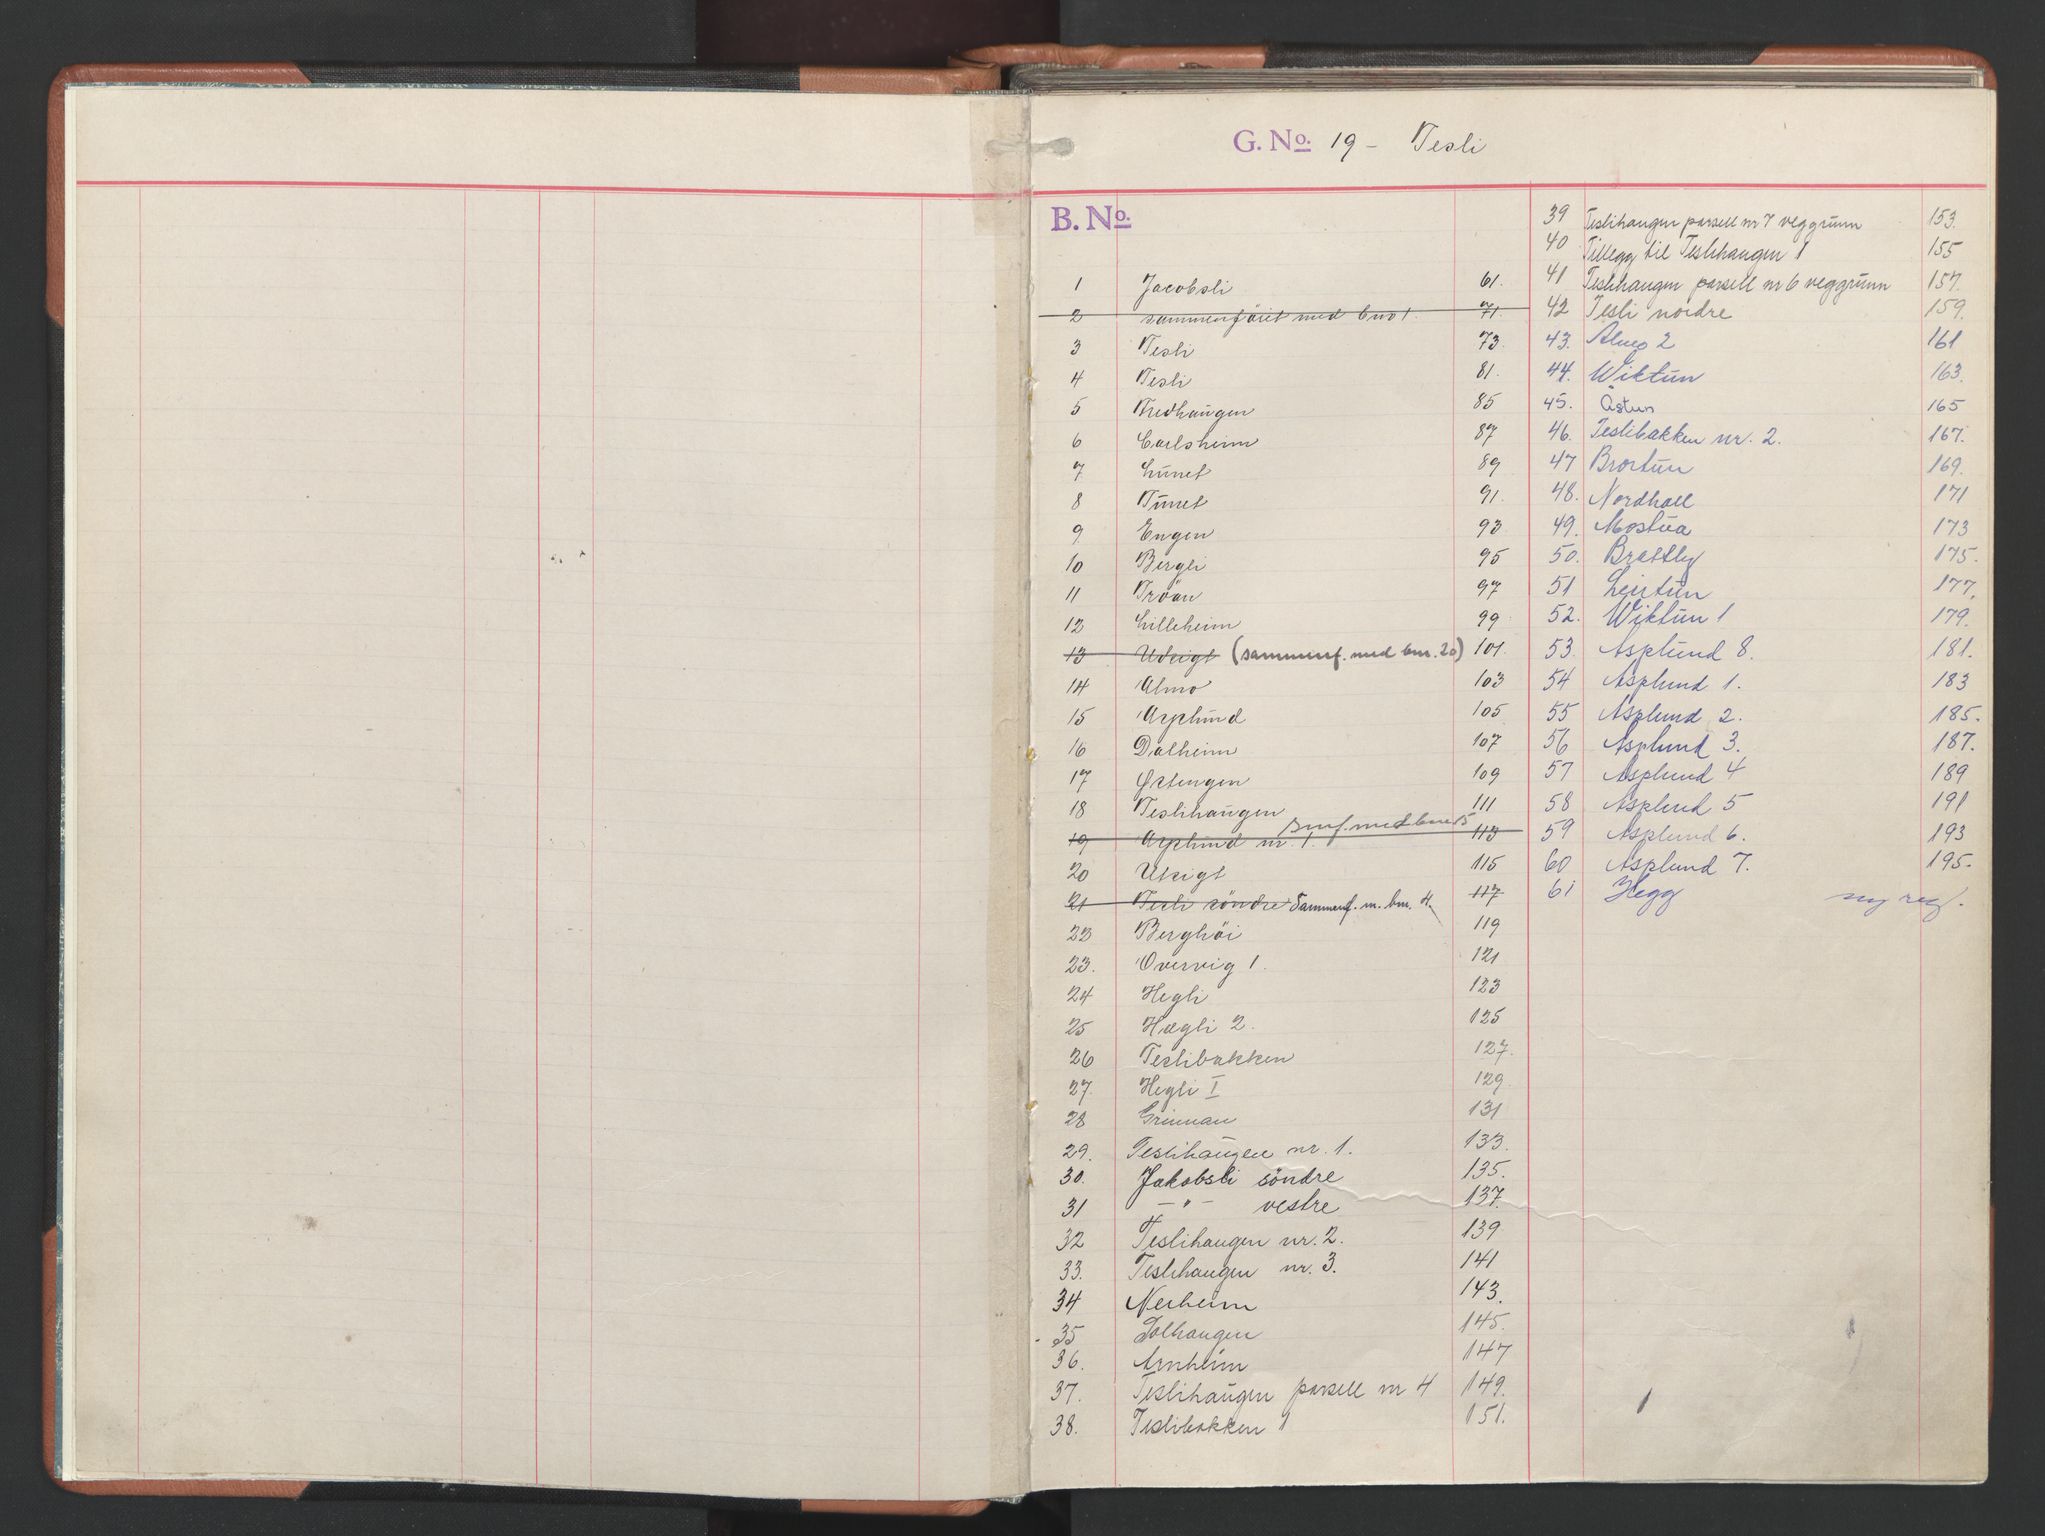 G. No. 19 - Tesli
B. No.
1 Jacobsli 61.
2 sammenføiet med bno 1. 71.
3 Tesli 73
4 Tesli 81.
5 Fredhaugen 85
6 Carlsheim 87
7 Lunet 89
8 Tunet 91.
9 Engen 93
10 Bergli 95
11 Trøan 97
12 Lilleheim 99
13 Utsigt (sammenf. med bnr. 20) 101.
14 Almo 103
15 Asplund 105
16 Dalheim 107
17 109
18 Teslihaugen 111
19 Asplund nr. 1. smf. med bnr 15 113
20 Utsigt 115
21 Tesli søndre Sammenf. m. bnr. 4. 117
22 Berghöi 119
23. Overvig 1. 121
24 Hegli 123
25 Hægli 2. 125
26 Teslibakken 127.
27. Hegli I 129.
28 Grinnan 131
29. Teslihaugen nr. 1. 133.
30. Jakobsli söndre 135.
31 -"- vestre 137.
32 Teslihaugen nr. 2. 139
33. Teslihaugen nr. 3. 141
34 Nerheim 143.
35 Solhaugen 145.
36. Arnheim 147
37. Teslihaugen parsell nr 4 149.
38. Teslibakken 1 151.
39 Teslihaugen parsell nr 7 veggrunn 153.
40 Tillegg til Teslihaugen 1 155
41 Teslihaugen parsell nr 6 veggrunn 157.
42 Tesli nordre 159.
43. Almo 2 161
44. Wiktun 163.
45. Åstun 165
46. Teslibakken nr. 2. 167.
47 Brortun 169.
48. Nordhall 171
49. Mostua 173
50. Brattly 175.
51 Leirtun 177.
52. Wiktun 1 179.
53. Asplund 8. 181.
54 Asplund 1. 183
55 Asplund 2. 185.
56 Asplund 3. 187.
57 Asplund 4 189
58 Asplund 5 191
59 Asplund 6. 193
60 Asplund 7. 195.
61 Hegg ny reg.